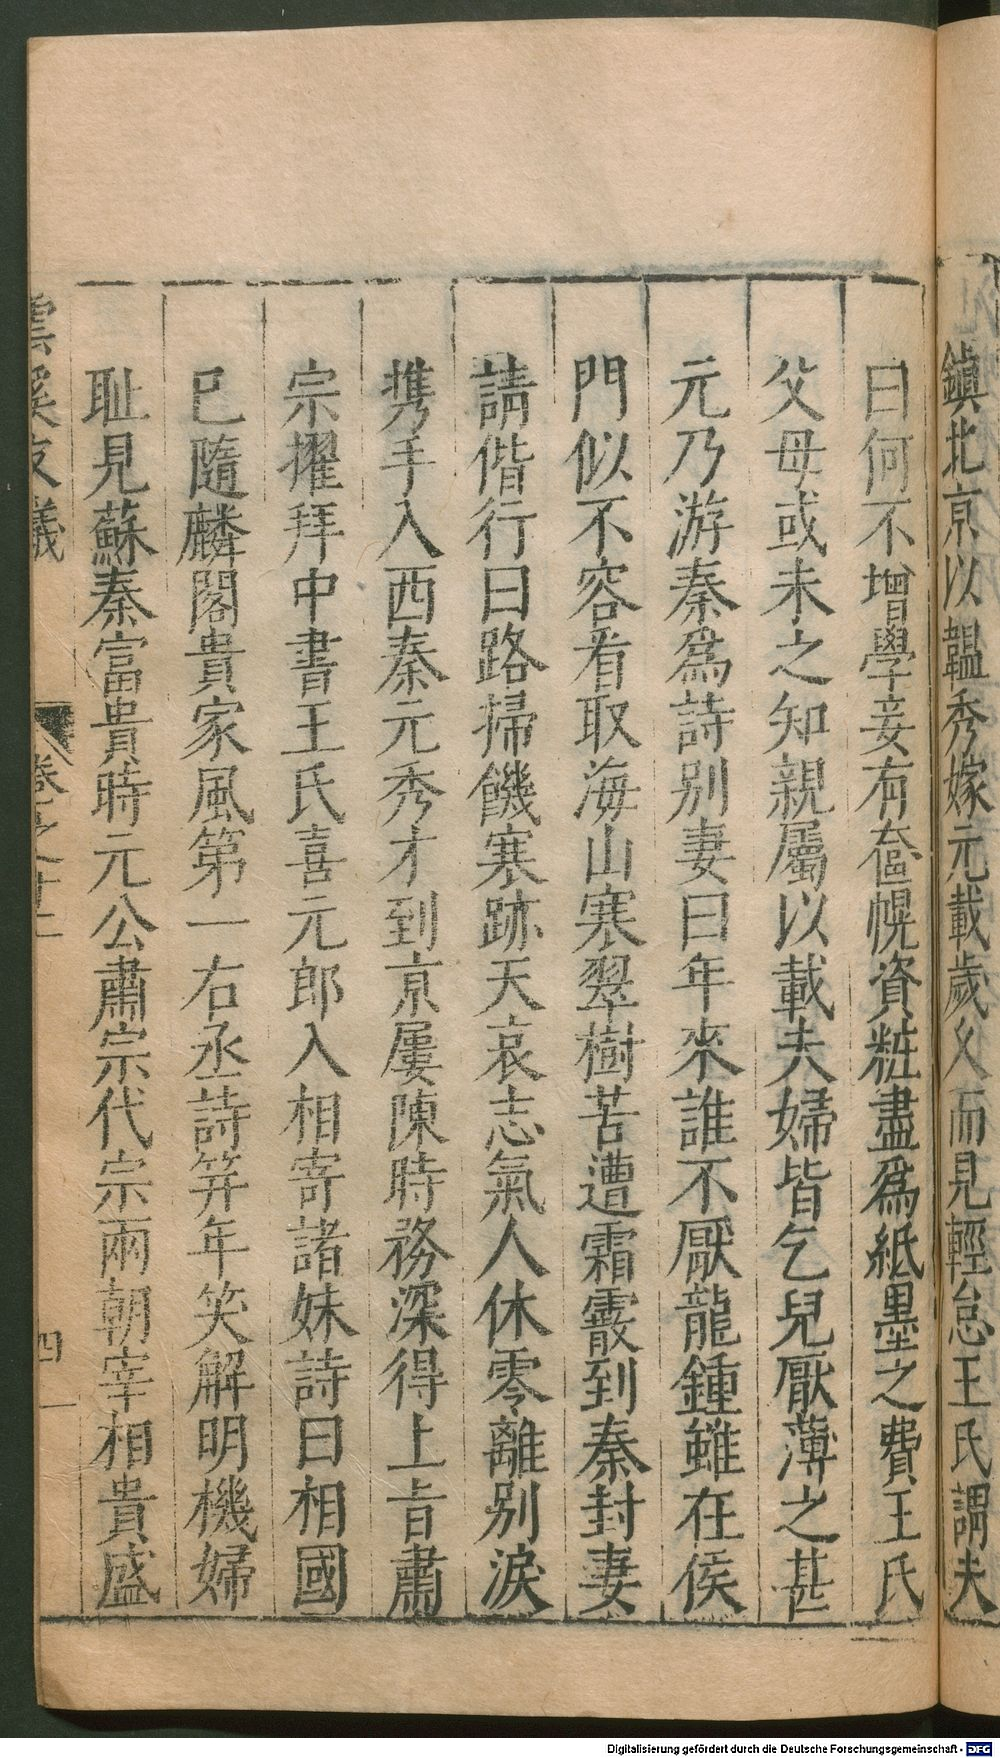 鎮北京以韞秀嫁元載歲久而見輕怠王氏謂夫
曰何不增學妾有奩幌資粧盡爲紙墨之費王氏
父母或未之知親屬以載夫婦皆乞兒厭薄之甚
元乃游秦爲詩別妻曰年來誰不厭龍鍾雖在侯
門似不容看取海山寒翠樹苦遭霜霰到秦封妻
請偕行曰路掃饑寒跡天哀志氣人休零離別淚
携手入西秦元秀才到京屢陳時務深得上旨肅
宗擢拜中書王氏喜元郎入相寄諸妹詩曰相國
已隨麟閣貴家風第一右丞詩筓年笑解明機婦
耻見蘇秦富貴時元公肅宗代宗兩朝宰相貴盛
雲溪友議
卷之十二
四
Digitalisierung gefördert durch die Deutsche Forschungsgemeinschaft - DFG